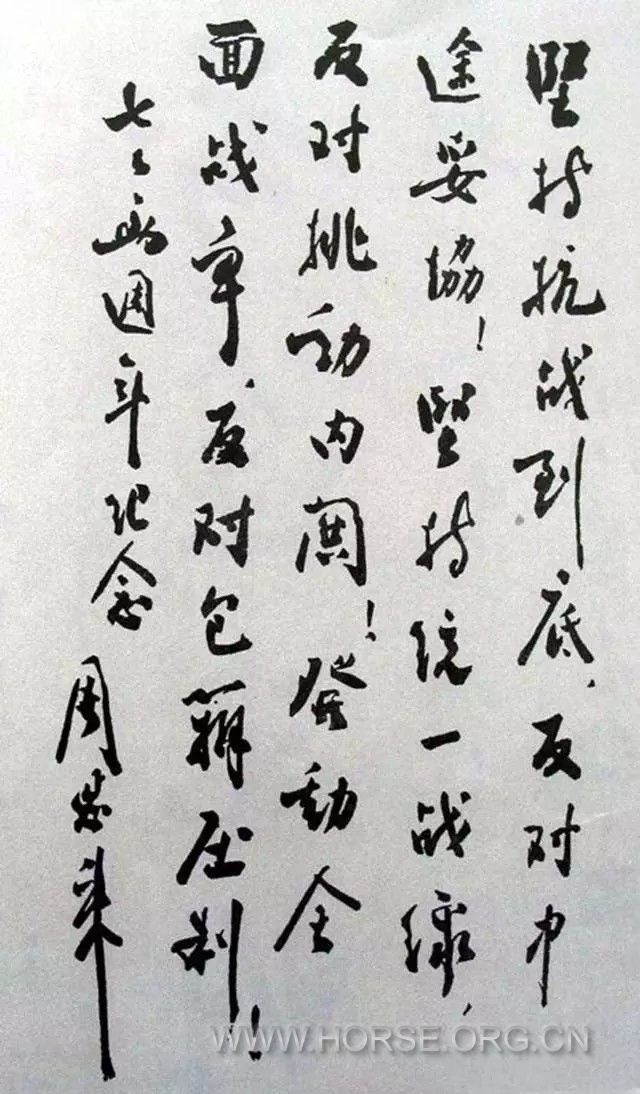 坚持抗战到底、反对中
途妥協！坚持统一战線、
反对挑动内鬨！發動全
面战争、反对包辦压制！
七七两週年纪念 周恩来
WWW.HORSE.ORG.CN